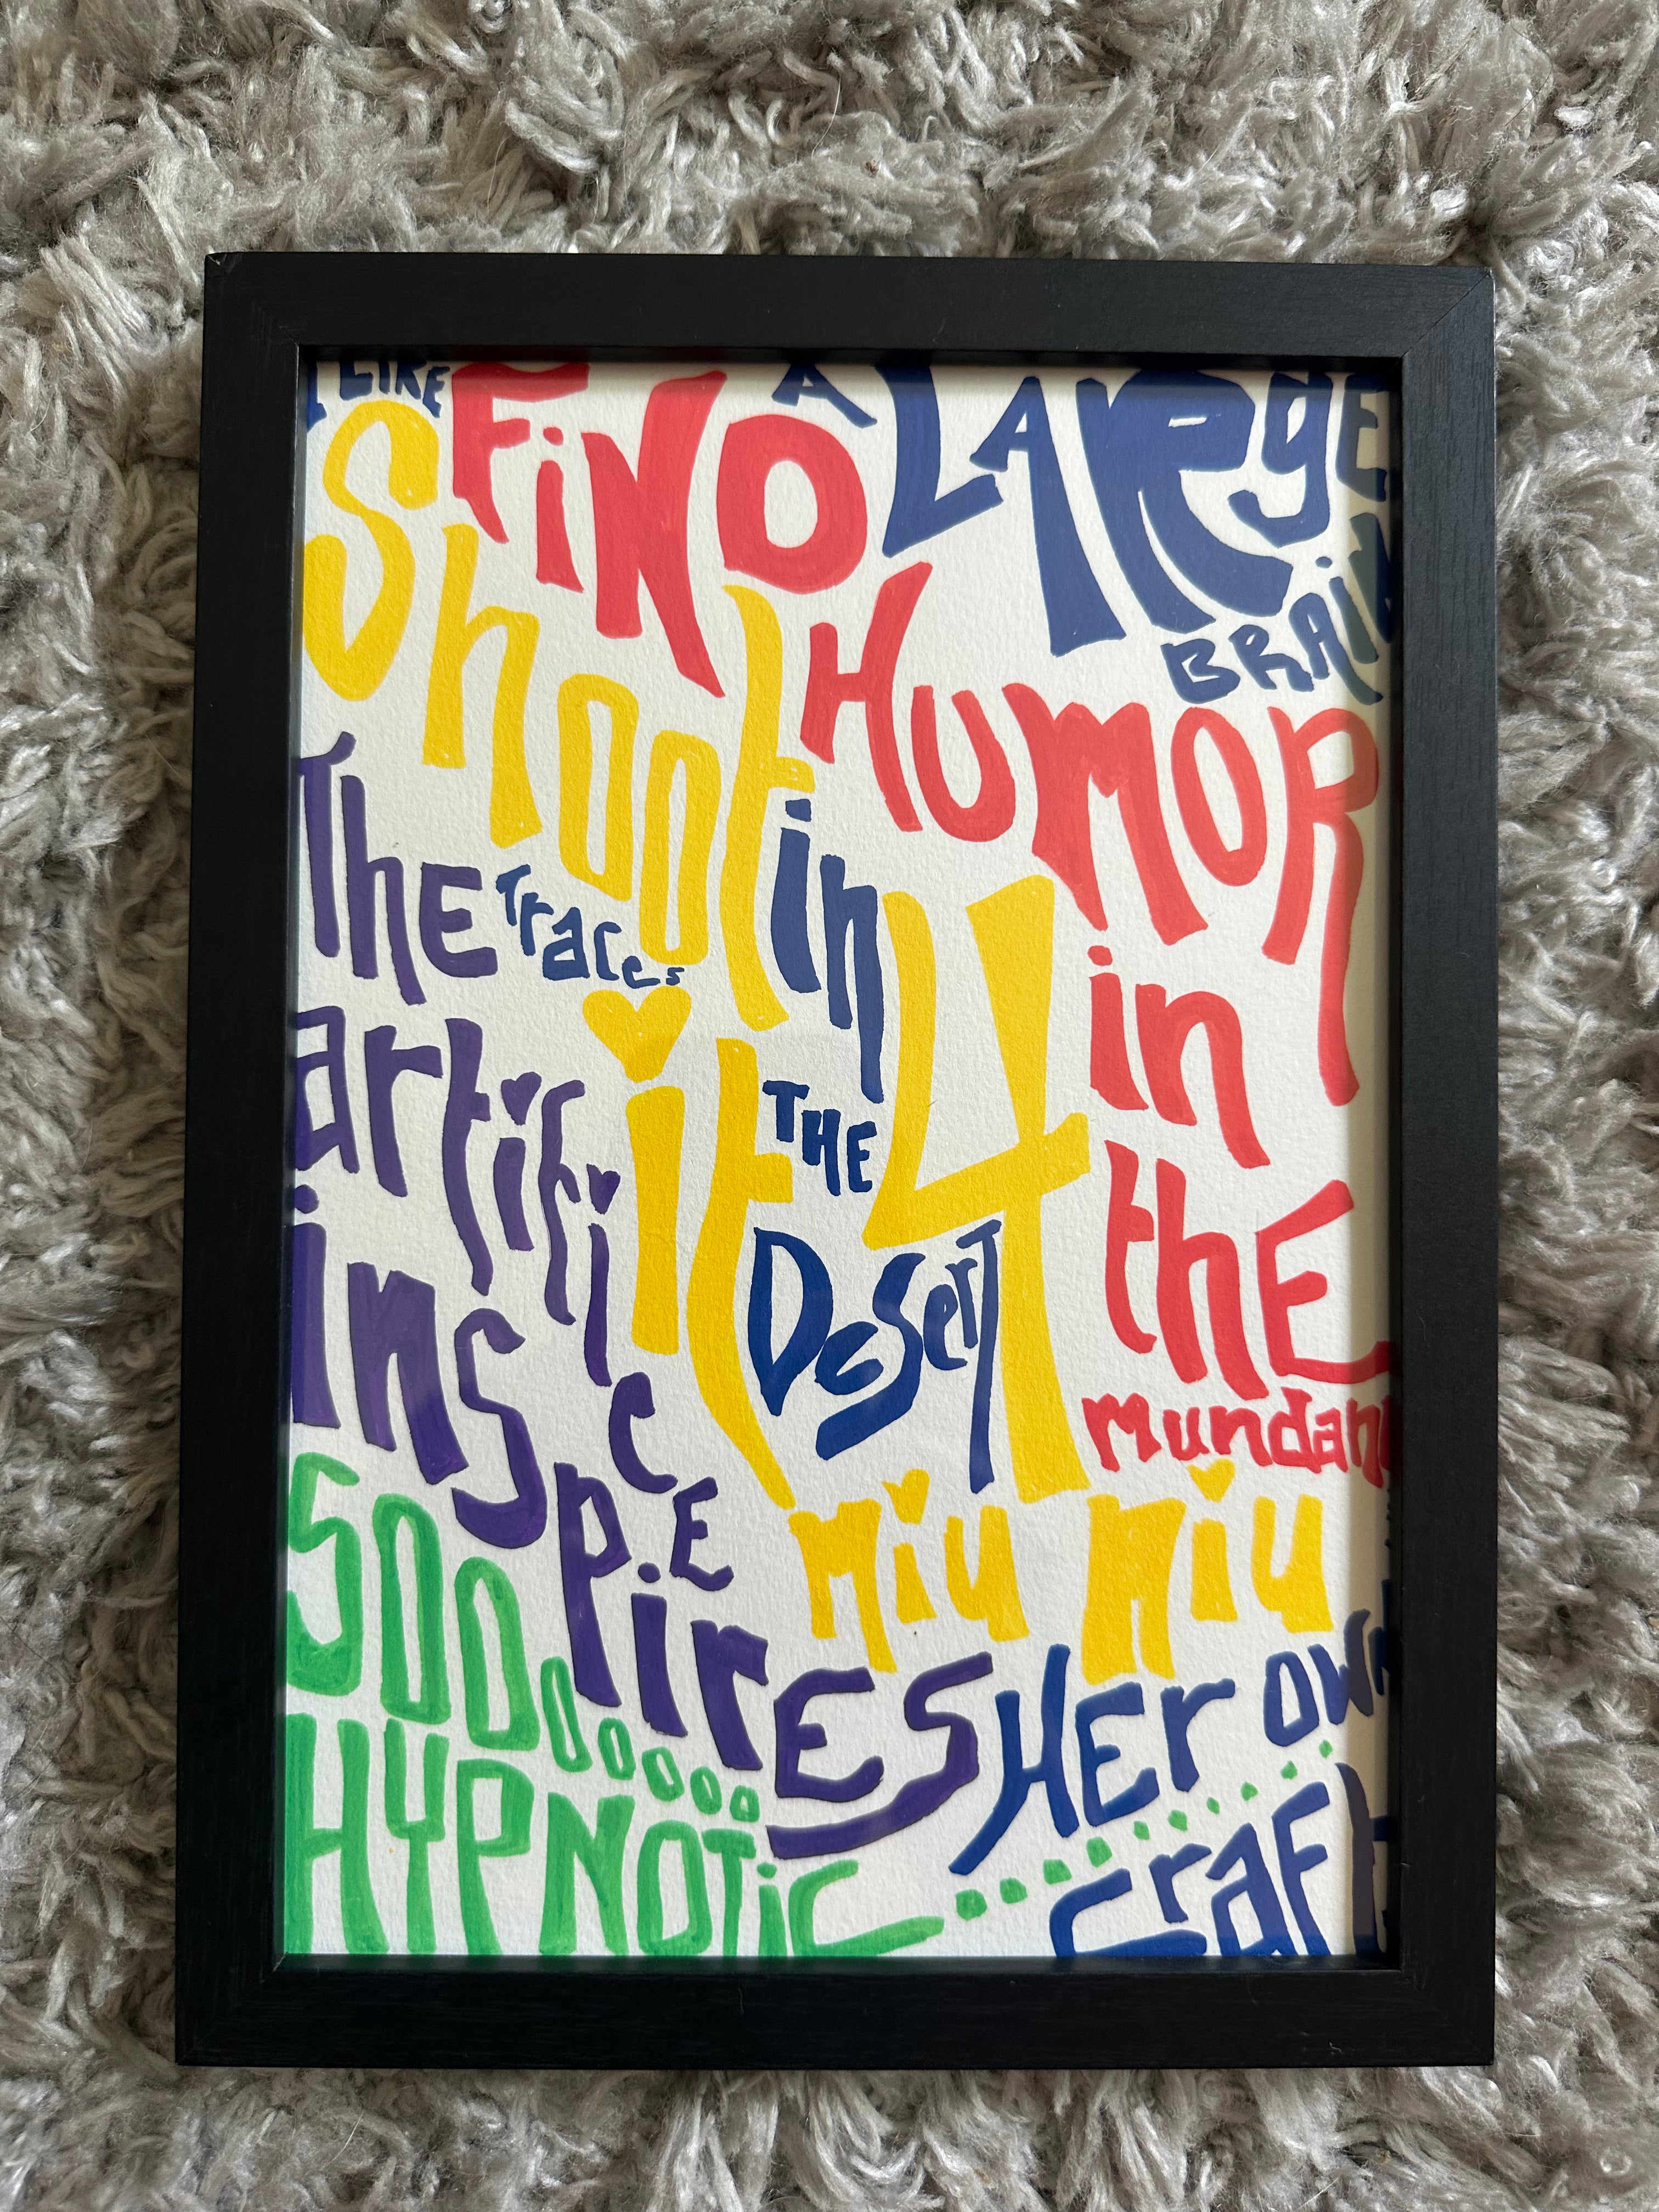 I LIKE
A LARgE
BRAiN
FiND
HUMOR
in
thE
mundan
Shoot
it 4
miu miu
in
THE
DeserT
ThE
Traces
artificE
inspirES
Sooooooo
HYPNOTiC
HEr own
craft